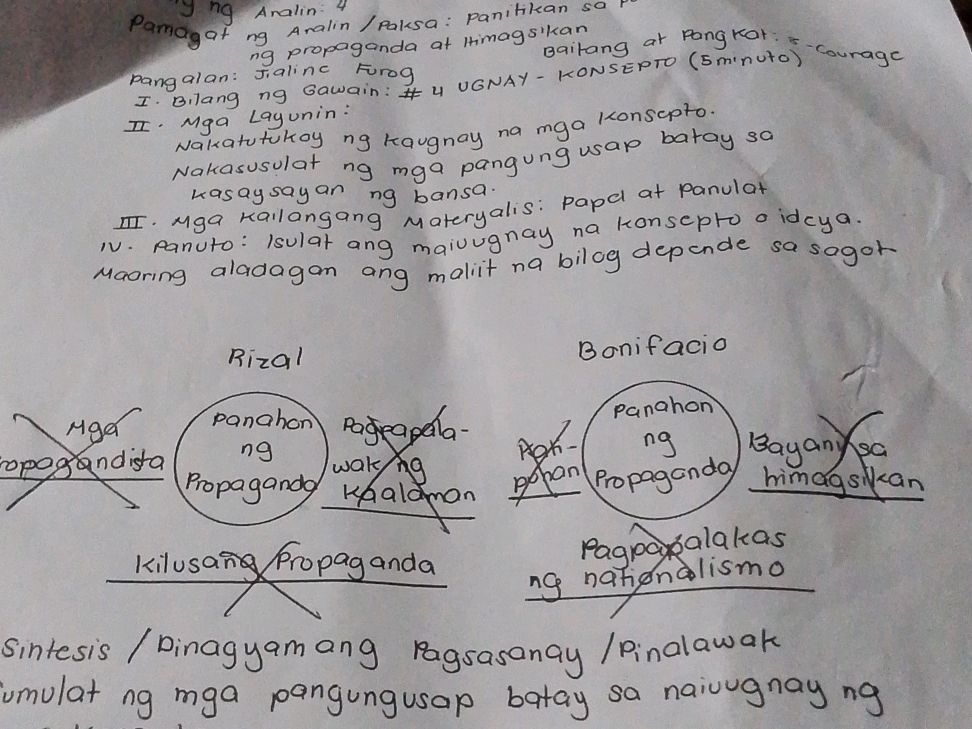 ng Aralin: 4
Pamagat ng Aralin / Paksa: Panitikan sa
ng propaganda at Himagsikan
Pangalan: Jialine Furog Baitang at Pangkat: 8 - Courage
I. Bilang ng Gawain: # 4 UGNAY - KONSEPTO (5 minuto)
II. Mga Layunin:
Nakatutukoy ng kaugnay na mga konsepto.
Nakasusulat ng mga pangungusap batay sa
kasaysayan ng bansa.
III. Mga kailangang Materyalis: papel at panulat
IV. Panuto: Isulat ang maiuugnay na konsepto o ideya.
Maoring aladagan ang maliit na bilog depende sa sagot
Rizal
Mga
ropagandista
Panahon
ng
Propaganda
Pagpapala-
wak ng
kaalaman
Kilusang Propaganda
Bonifacio
ponan
Panahon
ng
Propaganda
Bayani sa
himagsikan
Pagpapalakas
ng nationalismo
Sintesis / Dinagyamang Pagsasanay / Pinalawak
umulat ng mga pangungusap batay sa naiuugnay ng